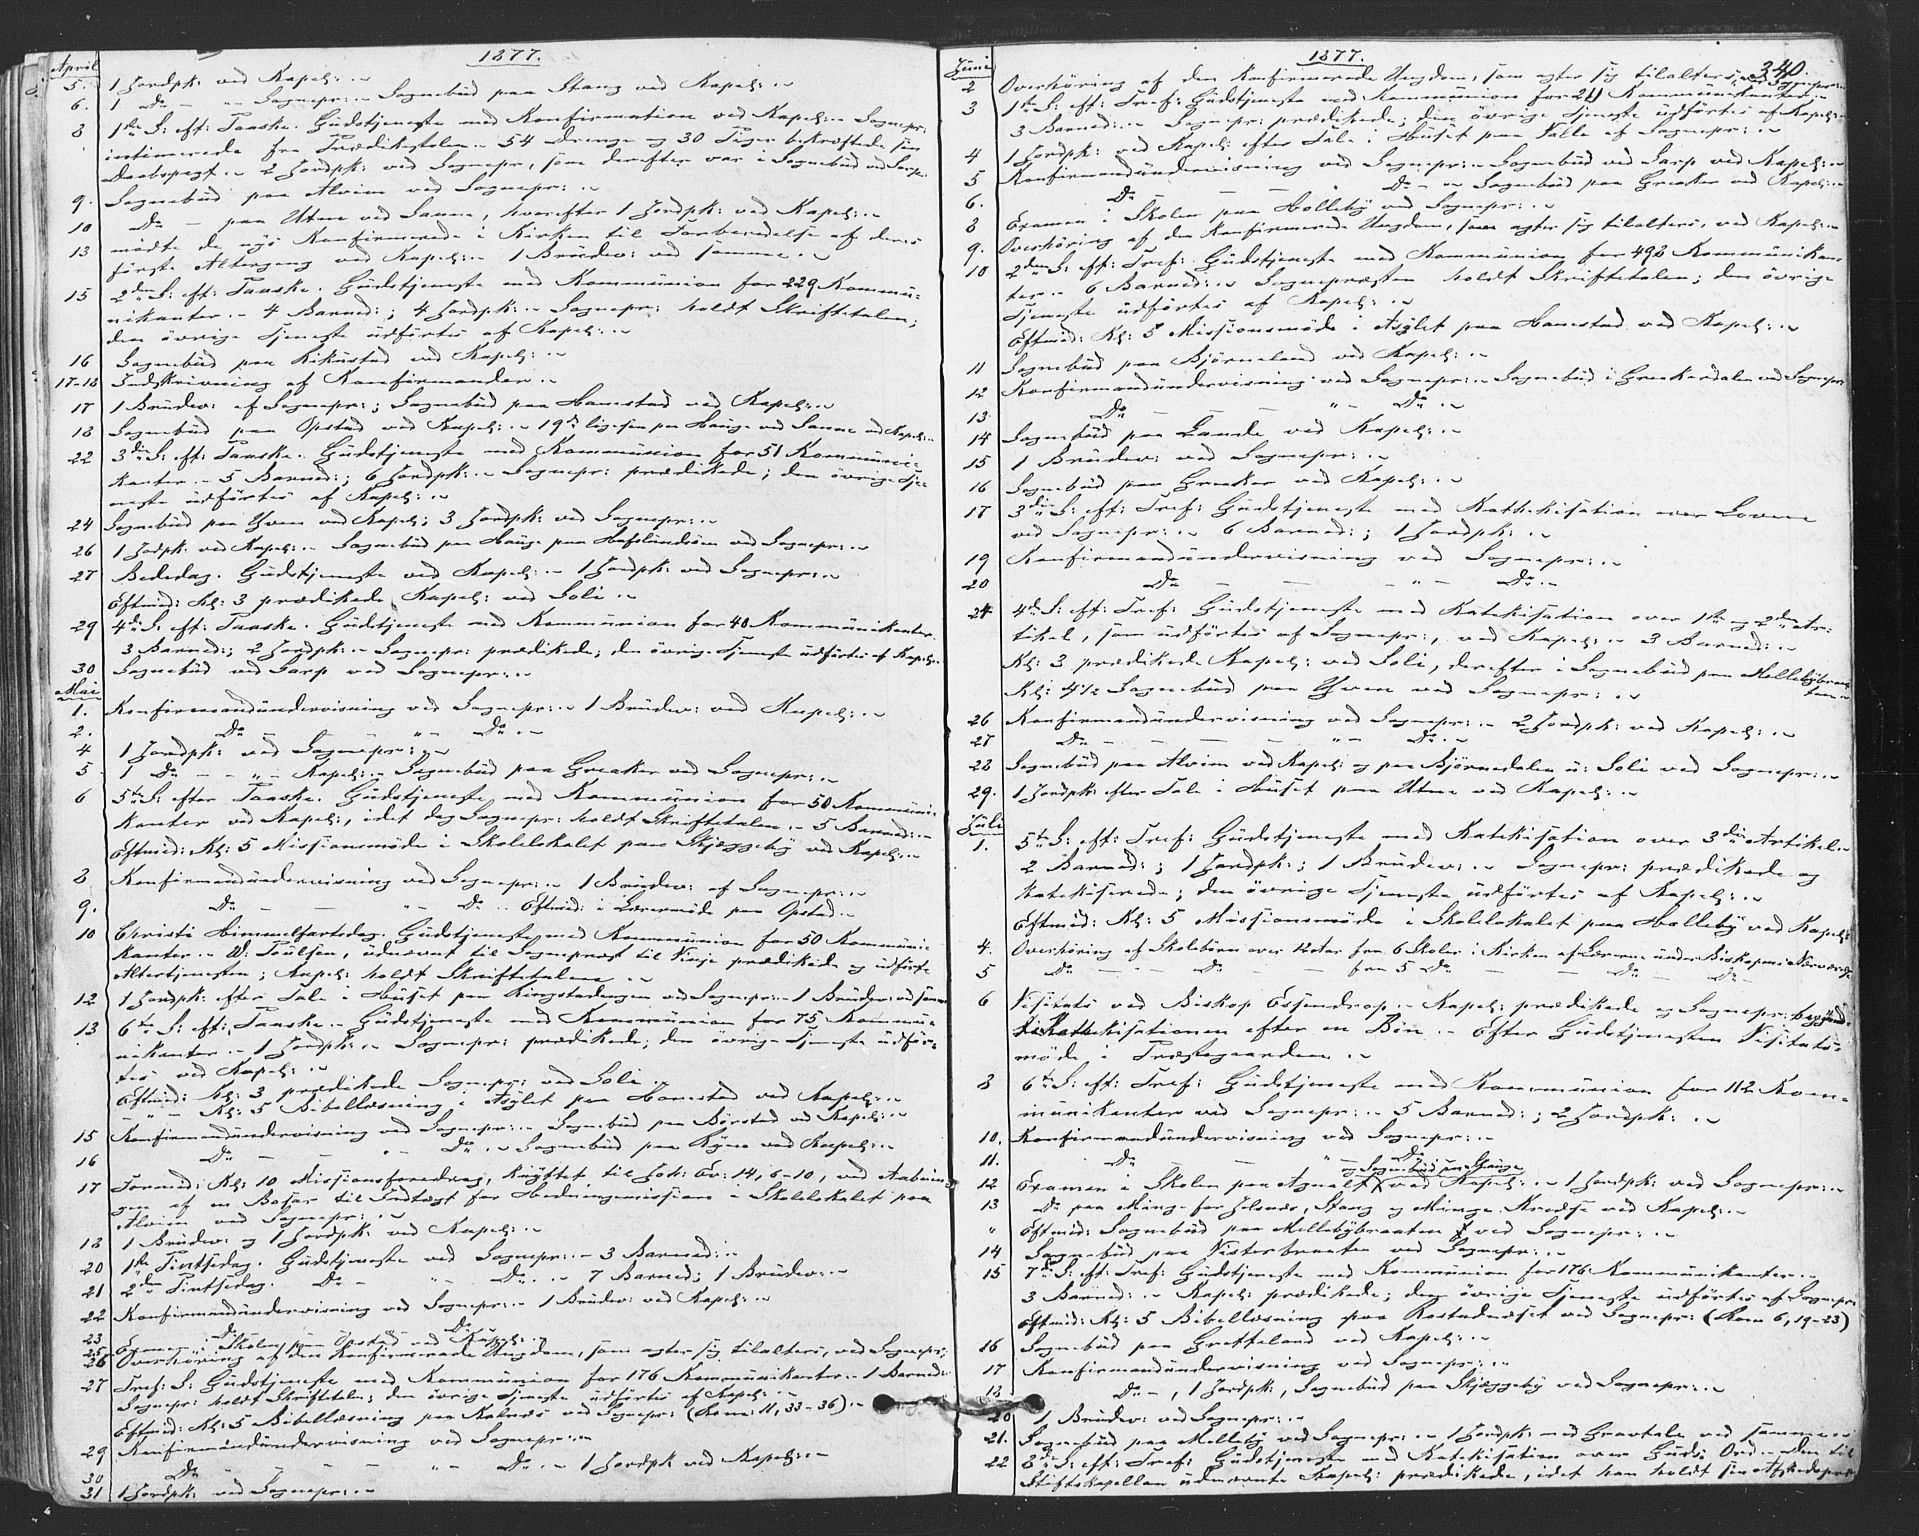 1877.
April
5. 1 Jordpk: ved Kapel:
6. 1 Do – " – Sognepr: – Sognebud paa Stang ved Kapel:
8 1ste S: eft: Paaske. Gudstjeneste med Konfirmation ved Kapel: Sognepr:
intimerede fra Prædikestolen – 54 Drenge og 30 Piger bekræftede sin
Daabspagt – 2 Jordpk: ved Sognepr:, som derefter var i Sognebud ved Sarp
9. Sognebud paa Alvim ved Sognepr:
10 Do – paa Utne ved Sanne, hvorefter 1 Jordpk: ved Kapel:
13 mødte de nys Konfirmerede i Kirken til Forberedelse af deres
første Altergang ved Kapel: – 1 Brudev: ved samme
15 2den S: eft: Paaske. Gudstjeneste med Kommunion for 229 Kommu-
nikanter – 4 Barned:; 4 Jordpk: – Sognepr: holdt Skriftetalen;
den øvrige Tjeneste udførtes af Kapel:
16 Sognebud paa Kikustad ved Kapel:
17-18 Indskrivning af Konfirmander
17 1 Brudev: af Sognepr:; Sognebud paa Hanestad ved Kapel:
18 Sognebud paa Opstad ved Kapel: – 19de ligesaa paa Hauge ved Sanne ved Kapel:
22 3die S: eft: Paaske. Gudstjeneste med Kommunion for 51 Kommuni-
kanter – 5 Barned:; 6 Jordpk: – Sognepr: prædikede; den øvrige Tje-
neste udførtes af Kapel:
24 Sognebud paa Yven ved Kapel; 3 Jordpk: ved Sognepr:
26 1 Jordpk: ved Kapel: – Sognebud paa Hauge paa Hafslundsøen ved Sognepr:
27 Bededag. Gudstjeneste ved Kapel: – 1 Jordpk: ved Sognepr:
Eftmid: Kl: 3 prædikede Kapel: ved Soli
29 4de S: eft: Paaske. Gudstjeneste med Kommunion for 40 Kommunikanter
3 Barned:; 2 Jordpk: – Sognepr: prædikede; den øvrige Tjeneste udførtes af Kapel:
30 Sognebud ved Sarp ved Sognepr:
Mai
1. Konfirmandundervisning ved Sognepr: – 1 Brudev: ved Kapel:
2. Do " – Do
4 1 Jordpk: ved Sognepr:
5 1 Do – " – Kapel: – Sognebud paa Greaker ved Sognepr:
6 5te S: efter Paaske. Gudstjeneste med Kommunion for 50 Kommuni-
kanter ved Kapel:, idet dog Sognepr: holdt Skriftetalen – 5 Barned:
Eftmid: Kl: 5 Missionsmøde i Skolelokalet paa Skjæggeby ved Kapel:
8 Konfirmandundervisning ved Sognepr: – 1 Brudev: af Sognepr:
9. Do – – " – Do – Eftmid: i Lærermøde paa Opstad
10 Christi Himmelfartsdag. Gudstjeneste med Kommunion for 50 Kommuni-
kanter – udnævnt til Sogneprest til Vinje prædikede og udførte
Altertjenesten; Kapel: holdt Skriftetalen
12 1 Jordpk: efter Tale i Huset paa Ringstadengen ved Sognepr: – 1 Brudev: ved samme
13 6te S: eft: Paaske – Gudstjeneste med Kommunion for 75 Kommu-
nikanter – 1 Jordpk: – Sognepr: prædikede; den øvrige Tjeneste udfør-
tes ved Kapel:
Eftmid: Kl: 3 prædikede Sognepr: ved Soli
" – Kl: 5 Bibellæsning i Asylet paa Hanestad ved Kapel:
15 Konfirmandundervisning ved Sognepr: – Sognebud paa Børstad ved Kapel:
16 Do – – " – Do – Sognebud paa ved Kapel:
17 Formid: Kl: 10 Missionsforedrag, knyttet til Joh: Ev: 14, 6–10, ved Aabnin-
gen af en Basar til Indtægt for Hedningemission i Skolelokalet paa
Alvim ved Sognepr:
18 1 Brudev: og 1 Jordpk: ved Kapel:
20 1ste Pintsedag. Gudstjeneste ved Sognepr: – 3 Barned:
21 2den Pintsedag. Do – " – Do – 7 Barned; 1 Brudev:
22 Konfirmandundervisning ved Sognepr: – 1 Brudev: ved Kapel:
23 Do Do
25 Examen i Skolen paa Opstad ved Kapel:
26 Overhøring af den Konfirmerede Ungdom, som agter sig tilalters, ved Sognepr:
27 Tref: S: Gudstjeneste med Kommunion for 176 Kommunikanter – 1 Barned:
Sognepr: holdt Skriftetalen; den øvrige Tjeneste udførtes af Kapel:
Eftmid: Kl: 5 Bibellæsning paa Kalnes ved Sognepr: (Rom: 11, 33–36)
29 Konfirmandundervisning ved Sognepr:
30 Do – – – " – Do – 1 Jordpk ved Kapel:
31 1 Jordpk: ved Sognepr:
1877.
340.
Juni
2 Overhøring af den Konfirmerede Ungdom, som agter sig tilalters, ved Sognepr:
3 1ste S: eft: Tref: Gudstjeneste med Kommunion for 211 Kommunikanter
3 Barned: – Sognepr: prædikede; den øvrige Tjeneste udførtes af Kapel:
4 1 Jordpk: ved Kapel: efter Tale i Huset paa Lalle af Sognepr:
5 Konfirmandundervisning ved Sognepr: – Sognebud ved Sarp ved Kapel:
6. Do – – " Do – Sognebud paa Greaker ved Kapel:
8 Examen i Skolen paa Holleby ved Sognepr:
9. Overhøring af den Konfirmerede Ungdom, som agter sig tilalters, ved Kapel:
10 2den S: eft: Tref: Gudstjeneste med Kommunion for 498 Kommunikan-
ter – 6 Barned: – Sognepresten holdt Skriftetalen; den øvrige
Tjeneste udførtes af Kapel:
Eftmid: Kl: 5 Missionsmøde i Asylet paa Hanestad ved Kapel:
11 Sognebud paa Bjørneland ved Kapel:
12 Konfirmandundervisning ved Sognepr: – Sognebud i Greakerdalen ved Sognepr:
13. Do – – – " – Do
14 Sognebud paa Lande ved Kapel:
15 1 Brudev: ved Sognepr:
16 Sognebud paa Greaker ved Kapel:
17 3die S: eft: Tref: Gudstjeneste med Kathekisation over Loven
ved Sognepr: – 6 Barned:; 1 Jordpk:
19 Konfirmandundervisning ved Sognepr:
20 Do – – – " – Do
24 4de S: eft: Tref: Gudstjeneste med Katekisation over 1ste og 2den Ar-
tikel, som udførtes af Sognepr:, ved Kapel: – 3 Barned:
Kl: 3 prædikede Kapel: ved Soli, derefter i Sognebud paa Mellebybraa-
ten
Kl: 4½ Sognebud paa Yven ved Sognepr:
26 Konfirmandundervisning ved Sognepr: – 2 Jordpk: ved Kapel:
27 Do – – – – " – Do
28 Sognebud paa Alvim ved Kapel: og paa Bjørnedalen u: Soli ved Sognepr:
29. 1 Jordpk: efter Tale i Huset paa Utne ved Kapel:
Juli
1. 5te S: eft: Tref: Gudstjeneste med Katekisation over 3die Artikel –
2 Barned:; 1 Jordpk:; 1 Brudev: – Sognepr: prædikede og
katekiserede; den øvrige Tjeneste udførtes af Kapel:
Eftmid: Kl: 5 Missionsmøde i Skolelokalet paa Holleby ved Kapel:
4. Overhøring af Skolebørn over 12 Aar fra 6 Skoler i Kirken af Lærerne under Biskopens Nærværelse
5 Do – – Do – – fra 5 Do – Do – Do –
6 Visitats ved Biskop Essendrop – Kapel: prædikede og Sognepr: begynd-
te Kathekisationen efter en Bøn – Efter Gudstjenesten Visitats-
møde i Præstegaarden
8 6te S: eft: Tref: Gudstjeneste med Kommunion for 112 Kom-
munikanter ved Sognepr: – 5 Barned:; 2 Jordpk:
10. Konfirmandundervisning ved Sognepr:
11. Do – – " – Do
og Sognebud paa Hauge
12 Examen i Skolen paa Agnalt ved Kapel: – 1 Jordpk: ved Sognepr:
13 Do paa Minge for Jelsnes, Stang og Minge Kredse ved Kapel:
" Eftmid: Sognebud paa Mellebybraaten ved Sognepr:
14 Sognebud paa Visterbraaten ved Sognepr:
15 7de S: eft: Tref: Gudstjeneste med Kommunion for 176 Kommunikanter –
3 Barned: – Kapel: prædikede; den øvrige Tjeneste udførtes af Sognepr:
Eftmid: Kl: 5 Bibellæsning paa ved Sognepr: (Rom 6, 19–23)
16 Sognebud paa Gretteland ved Kapel:
17 Konfirmandundervisning ved Sognepr:
18 Do –, 1 Jordpk:, Sognebud paa Skjæggeby ved Sognepr:
20 1 Brudev: ved Sognepr:
21. Sognebud paa Melleby ved Sognepr: – 1 Jordpk: med Gravtale ved samme
22 8de S: eft: Tref: Gudstjeneste med Katekisation over Guds Ord – Den til
Stiftskapellan udnævnte Kapel: prædikede, idet han holdt sin Afskedspræ-